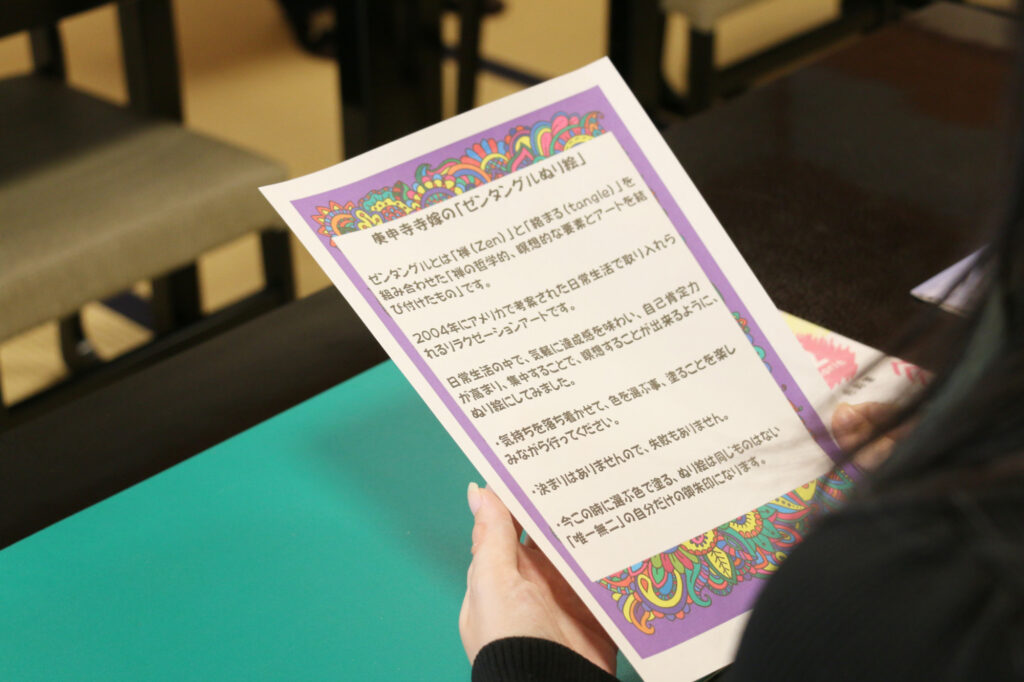 庚申寺寺嫁の「ゼンタングルぬり絵」
ゼンタングルとは「禅(Zen)」と「絡まる(tangle)」を
組み合わせた「禅の哲学的、瞑想的な要素とアートを結
び付けたもの」です。
2004年にアメリカで考案された日常生活で取り入れら
れるリラクゼーションアートです。
日常生活の中で、気軽に達成感を味わい、自己肯定力
が高まり、集中することで、瞑想することが出来るように、
ぬり絵にしてみました。
・気持ちを落ち着かせて、色を選ぶ事、塗ることを楽し
みながら行ってください。
・決まりはありませんので、失敗もありません。
・今この時に選ぶ色で塗る、ぬり絵は同じものはない
「唯一無二」の自分だけの御朱印になります。